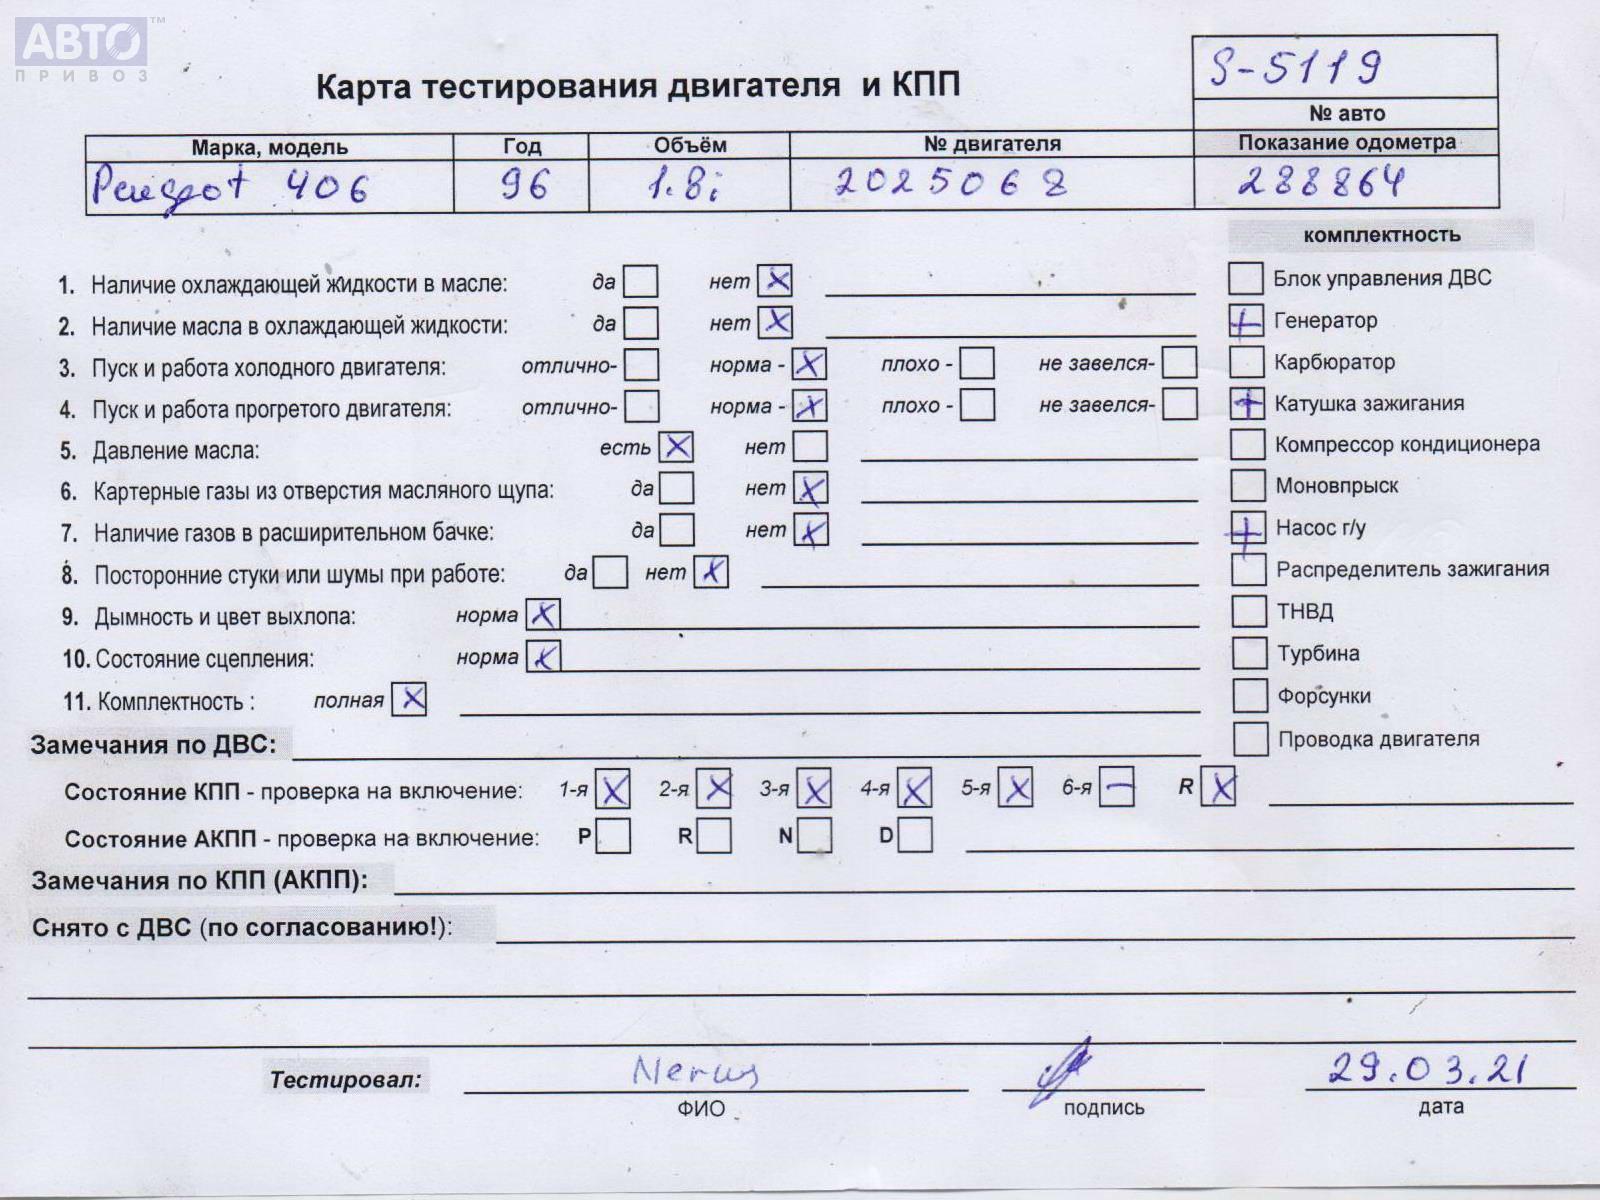 АВТО™
ПРИВОЗ
S-5119
Карта тестирования двигателя и КПП
№ авто
Марка, модель Год Объём № двигателя Показание одометра
Peugeot 406 96 1.8i 2025068 288864
комплектность
1. Наличие охлаждающей жидкости в масле: да нет X Блок управления ДВС
2. Наличие масла в охлаждающей жидкости: да нет X + Генератор
3. Пуск и работа холодного двигателя: отлично- норма - X плохо - не завелся- Карбюратор
4. Пуск и работа прогретого двигателя: отлично- норма - X плохо - не завелся- + Катушка зажигания
5. Давление масла: есть X нет Компрессор кондиционера
6. Картерные газы из отверстия масляного щупа: да нет X Моновпрыск
7. Наличие газов в расширительном бачке: да нет X + Насос г/у
8. Посторонние стуки или шумы при работе: да нет X Распределитель зажигания
9. Дымность и цвет выхлопа: норма X ТНВД
10. Состояние сцепления: норма X Турбина
11. Комплектность : полная X Форсунки
Замечания по ДВС: Проводка двигателя
Состояние КПП - проверка на включение: 1-я X 2-я X 3-я X 4-я X 5-я X 6-я – R X
Состояние АКПП - проверка на включение: P R N D
Замечания по КПП (АКПП):
Снято с ДВС (по согласованию!):
Тестировал: 29.03.21
ФИО подпись дата